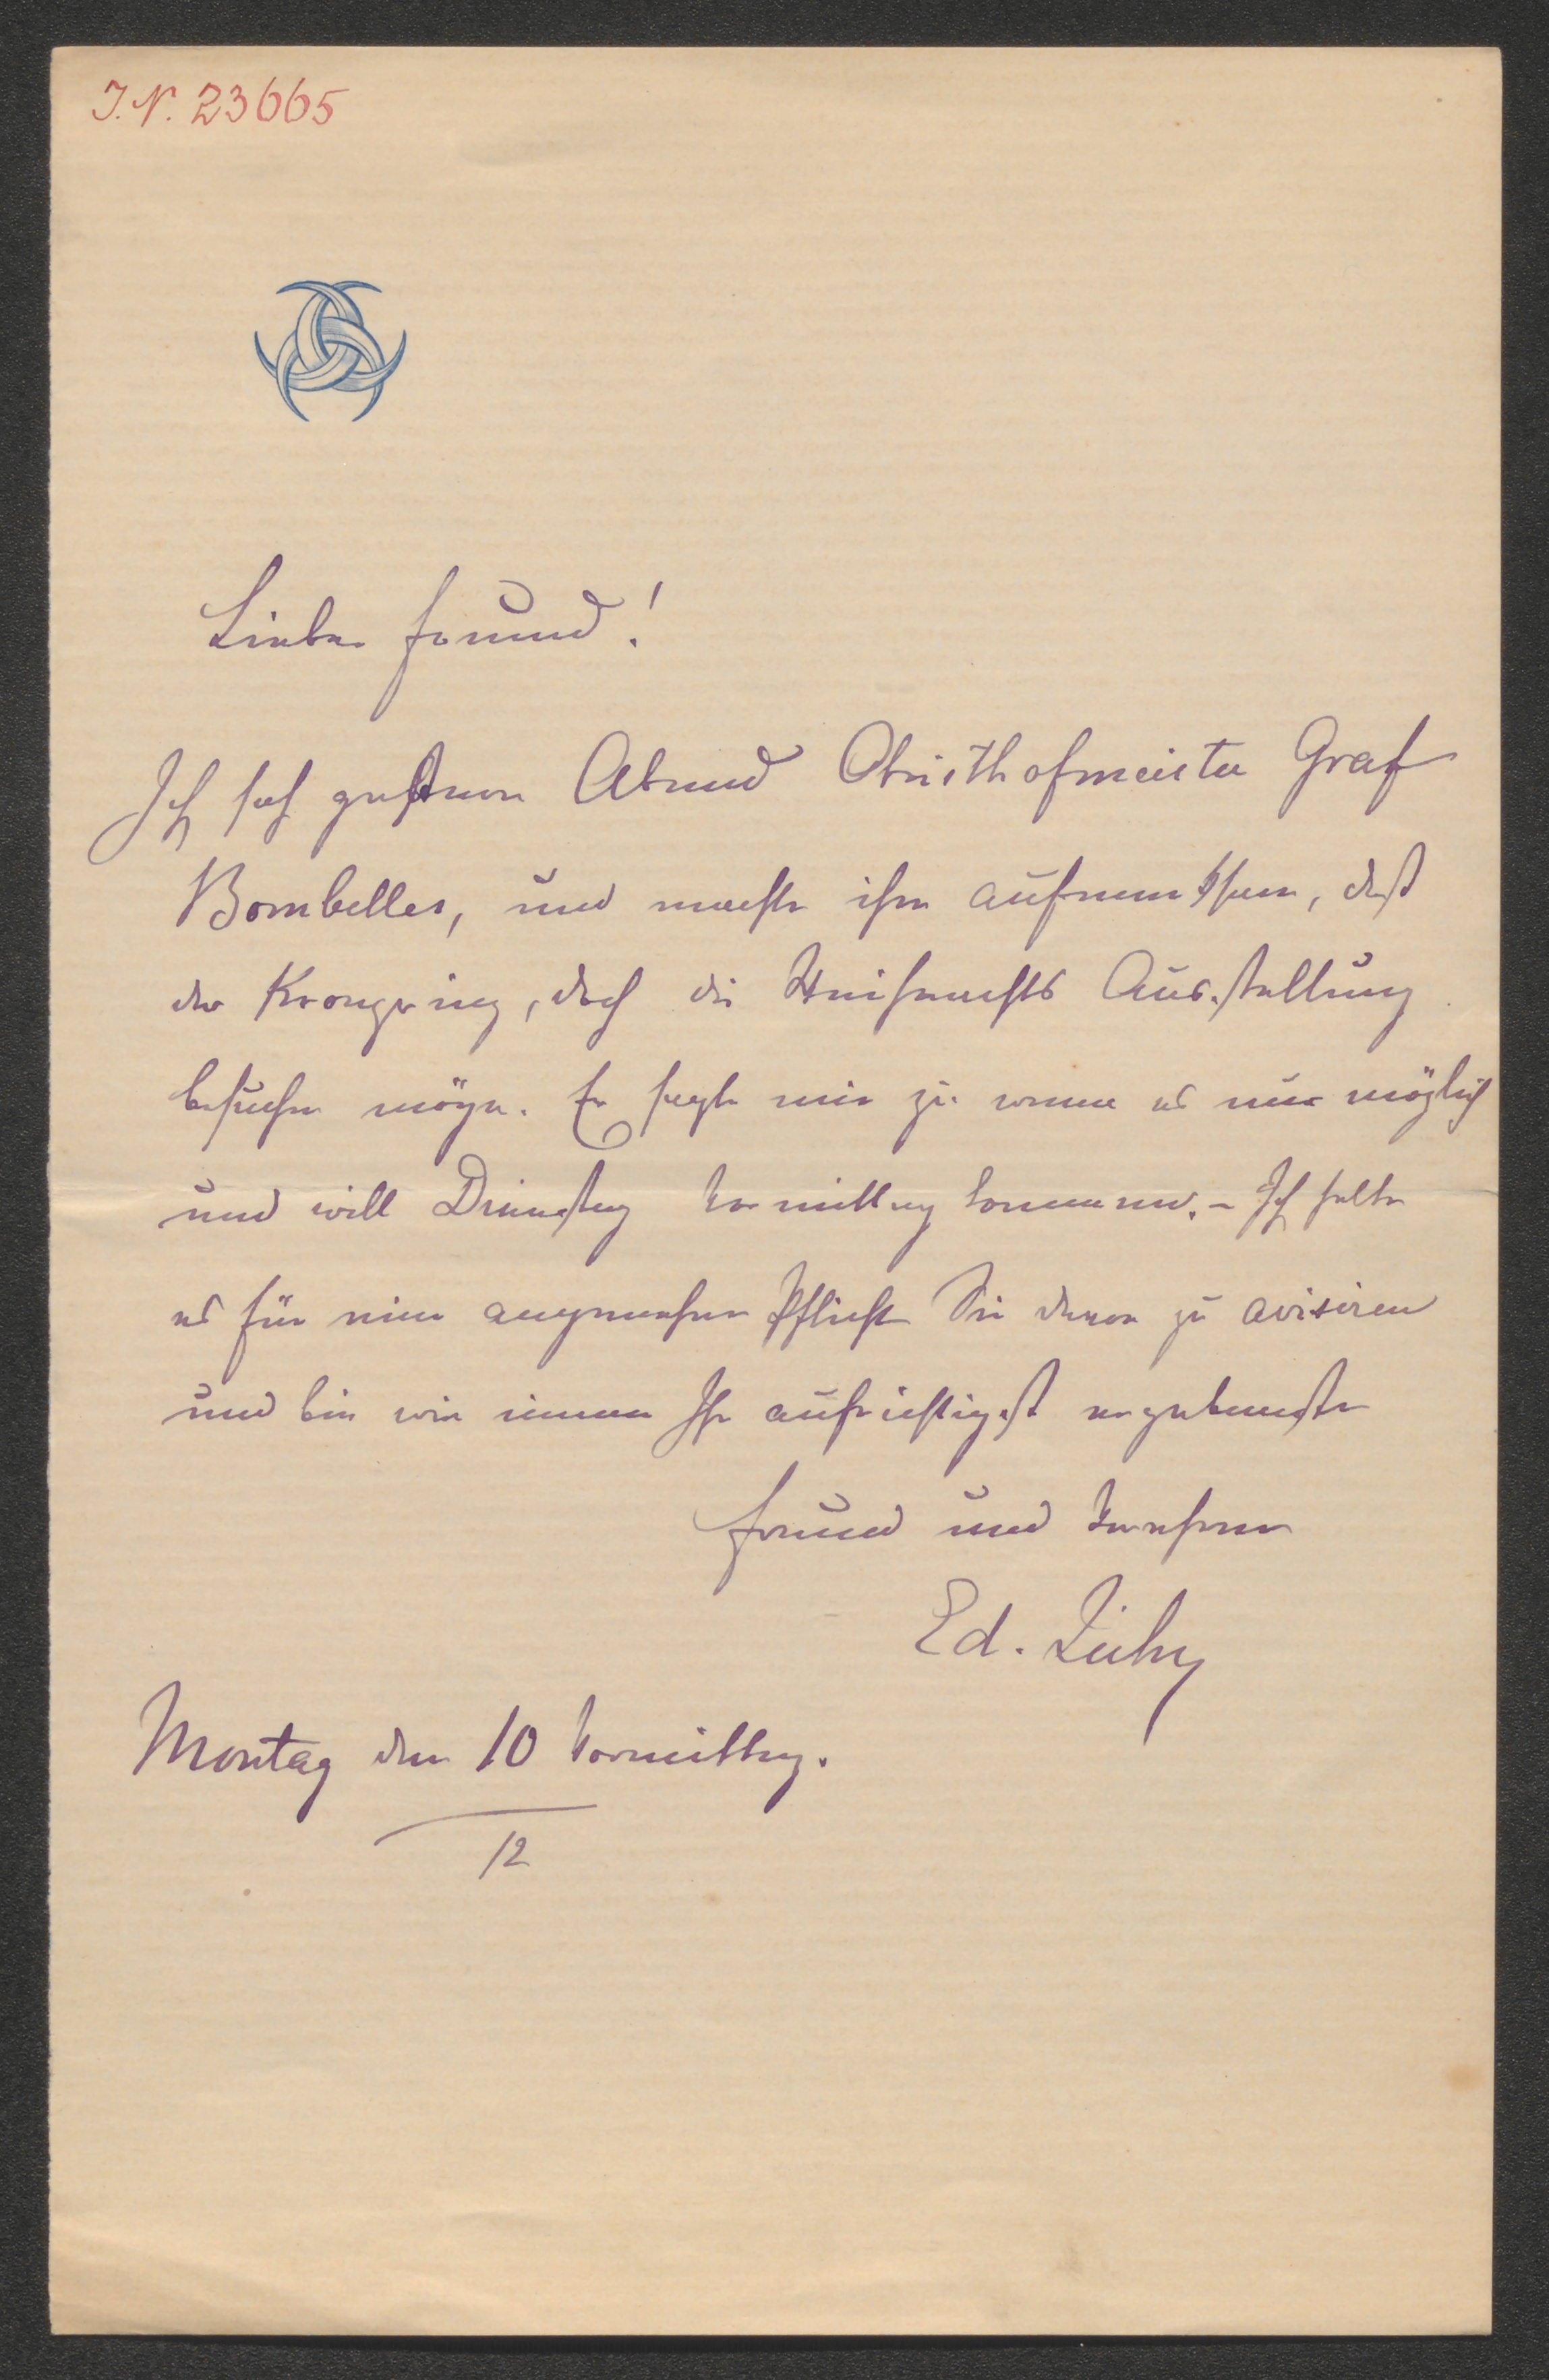 J.N. 23665
Lieber Freund!
Ich sah gestern Abend Obristhofmeister Graf
Bombelles, und machte ihn aufmerksam, daß
der Kronprinz, doch die Weihnachts Ausstellung
besuchen möge. Er sagte mir zu wenn es nur möglich
und will Dienstag Vormittag kommen. – Ich halte
es für eine angenehme Pflicht Sie davon zu avisiren
und bin wie immer Ihr aufrichtigst ergebenster
Freund und Verehrer
Ed. Zichy
Montag den 10 Vormittag.
12